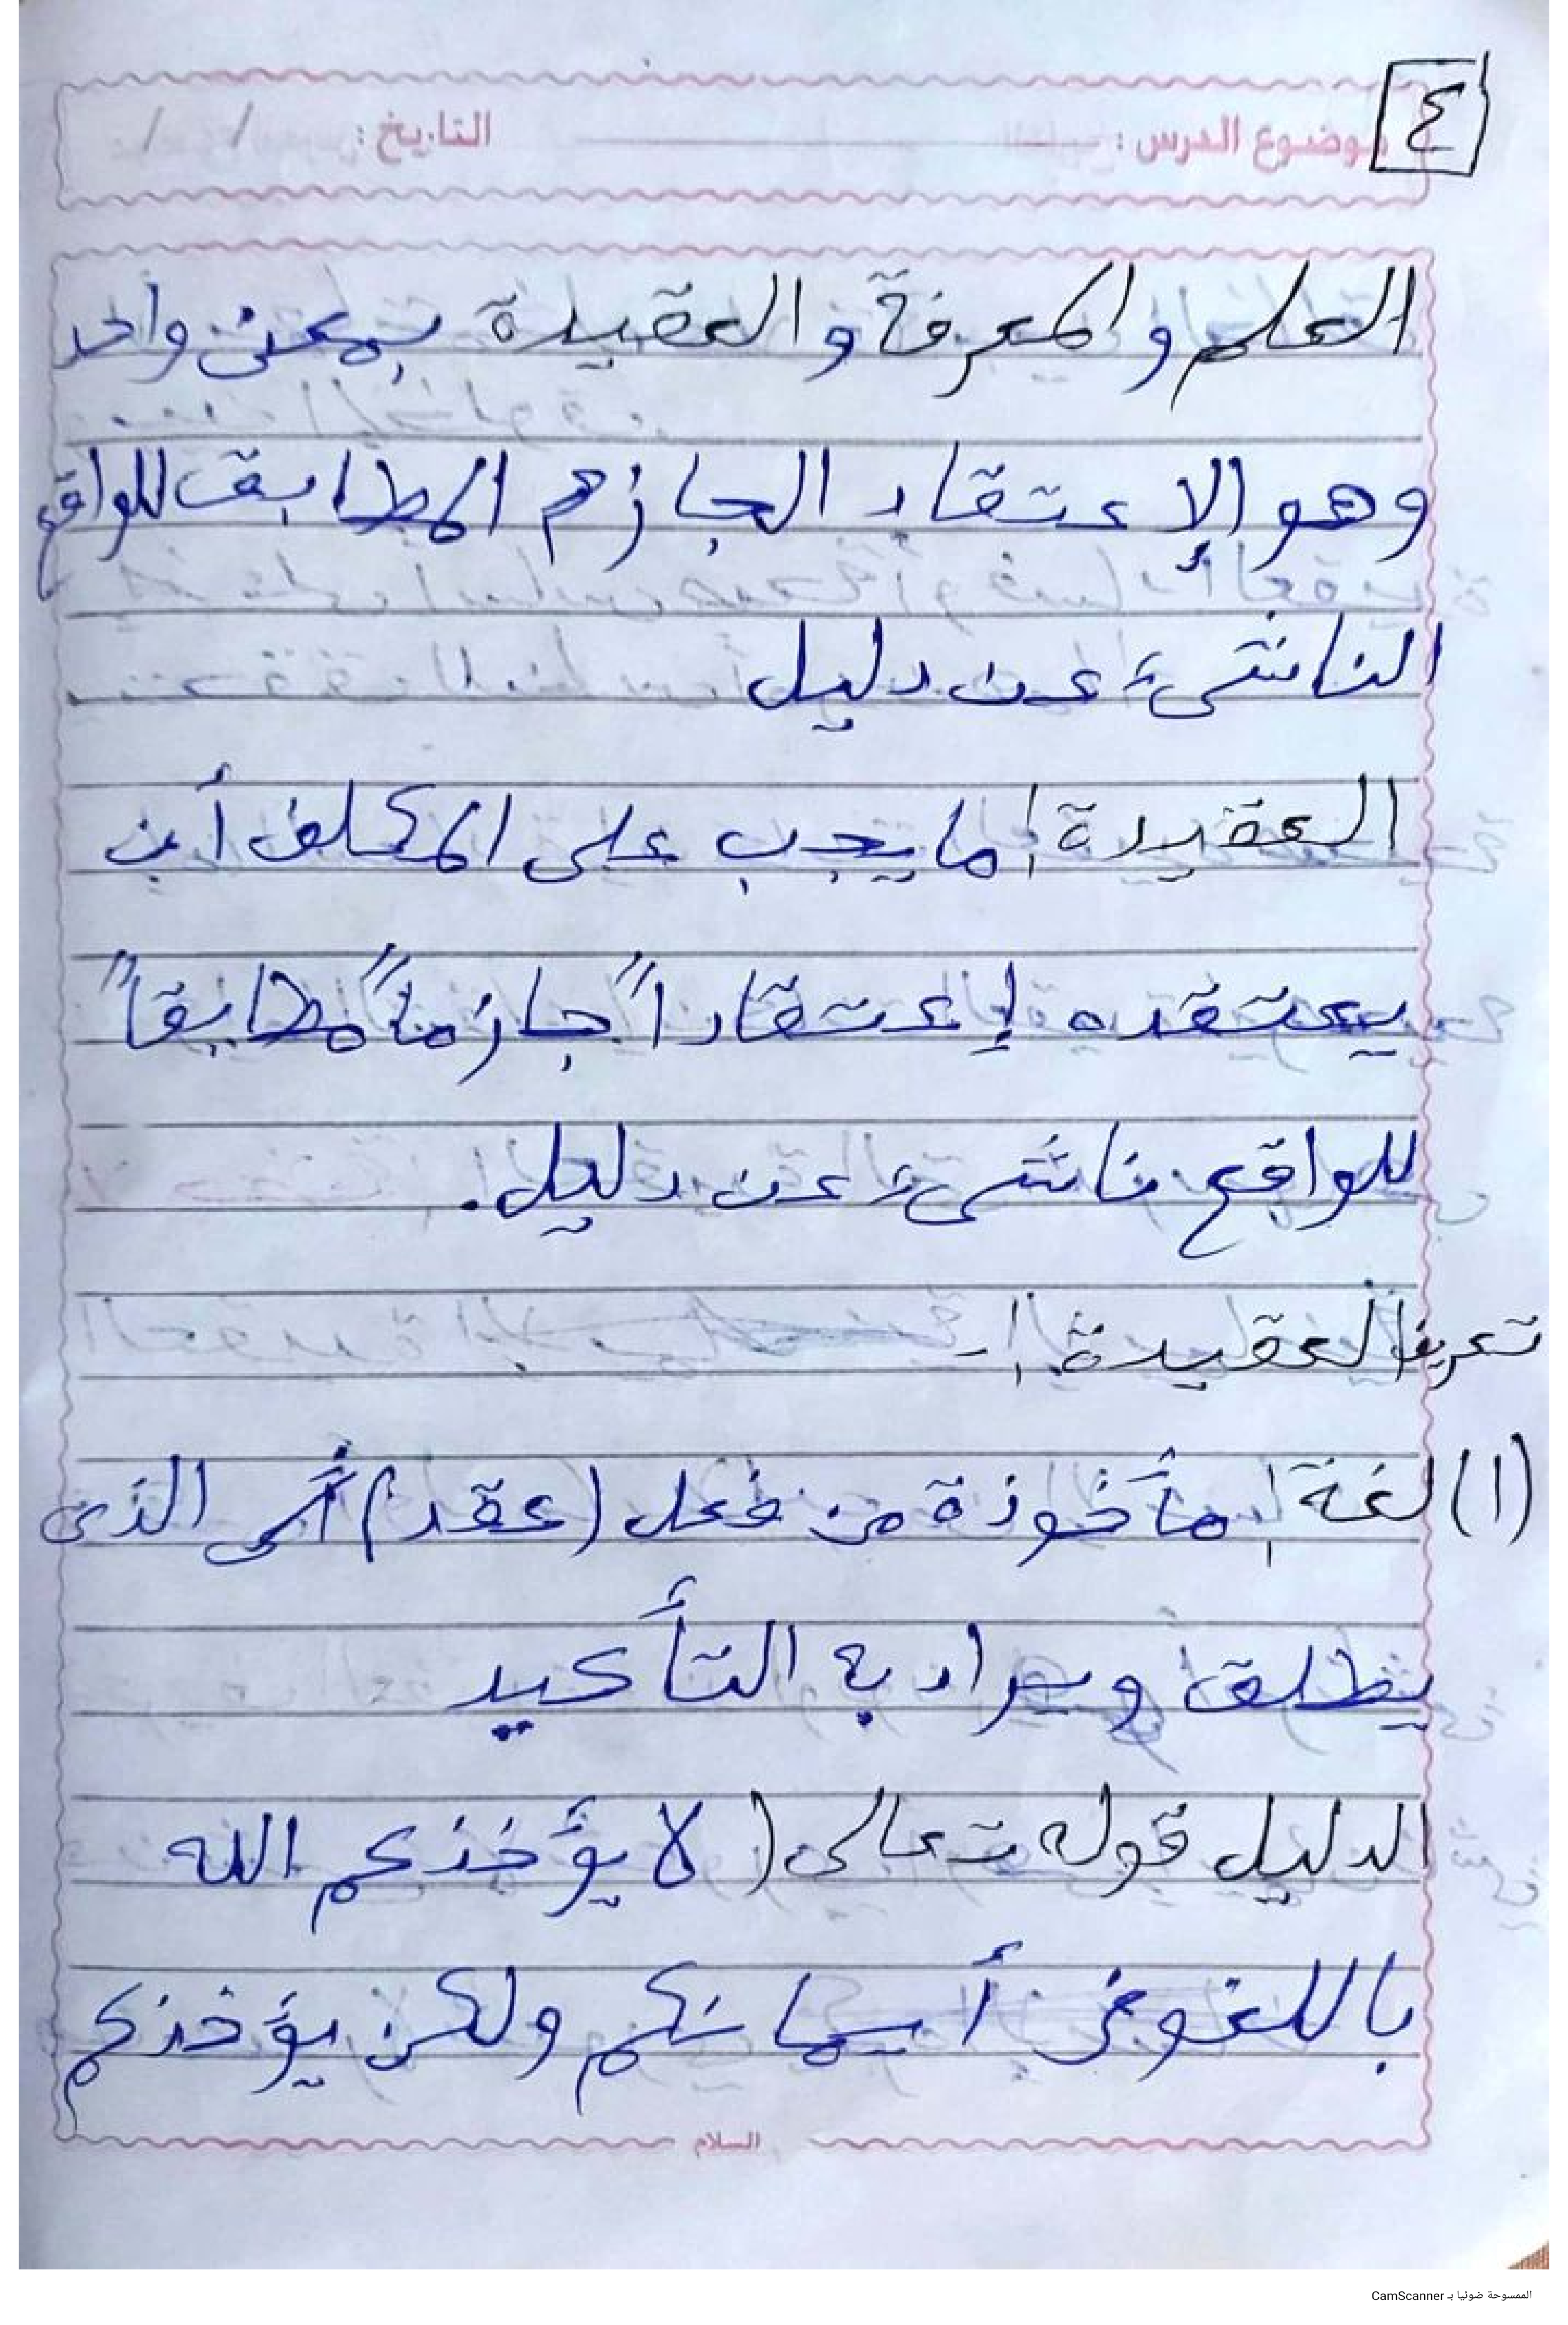 ٤
موضوع الدرس : التاريخ : / /
العلم والمعرفة والعقيدة بمعنى واحد
وهو الإعتقاد الجازم المطابق للواقع
الناشىء عن دليل
العقيدة : ما يجب على المكلف أن
يعتقده إعتقاداً جازماً مطابقاً
للواقع ناشىء عن دليل.
تعريف العقيدة :-
(١) لغة : مأخوذة من فعل (عقد) أي الذي
يطلق ويراد به التأكيد
الدليل قوله تعالى ( لا يؤخذكم الله
باللغو في أيمانكم ولكن يؤخذكم
السلام
الممسوحة ضوئيا بـ CamScanner